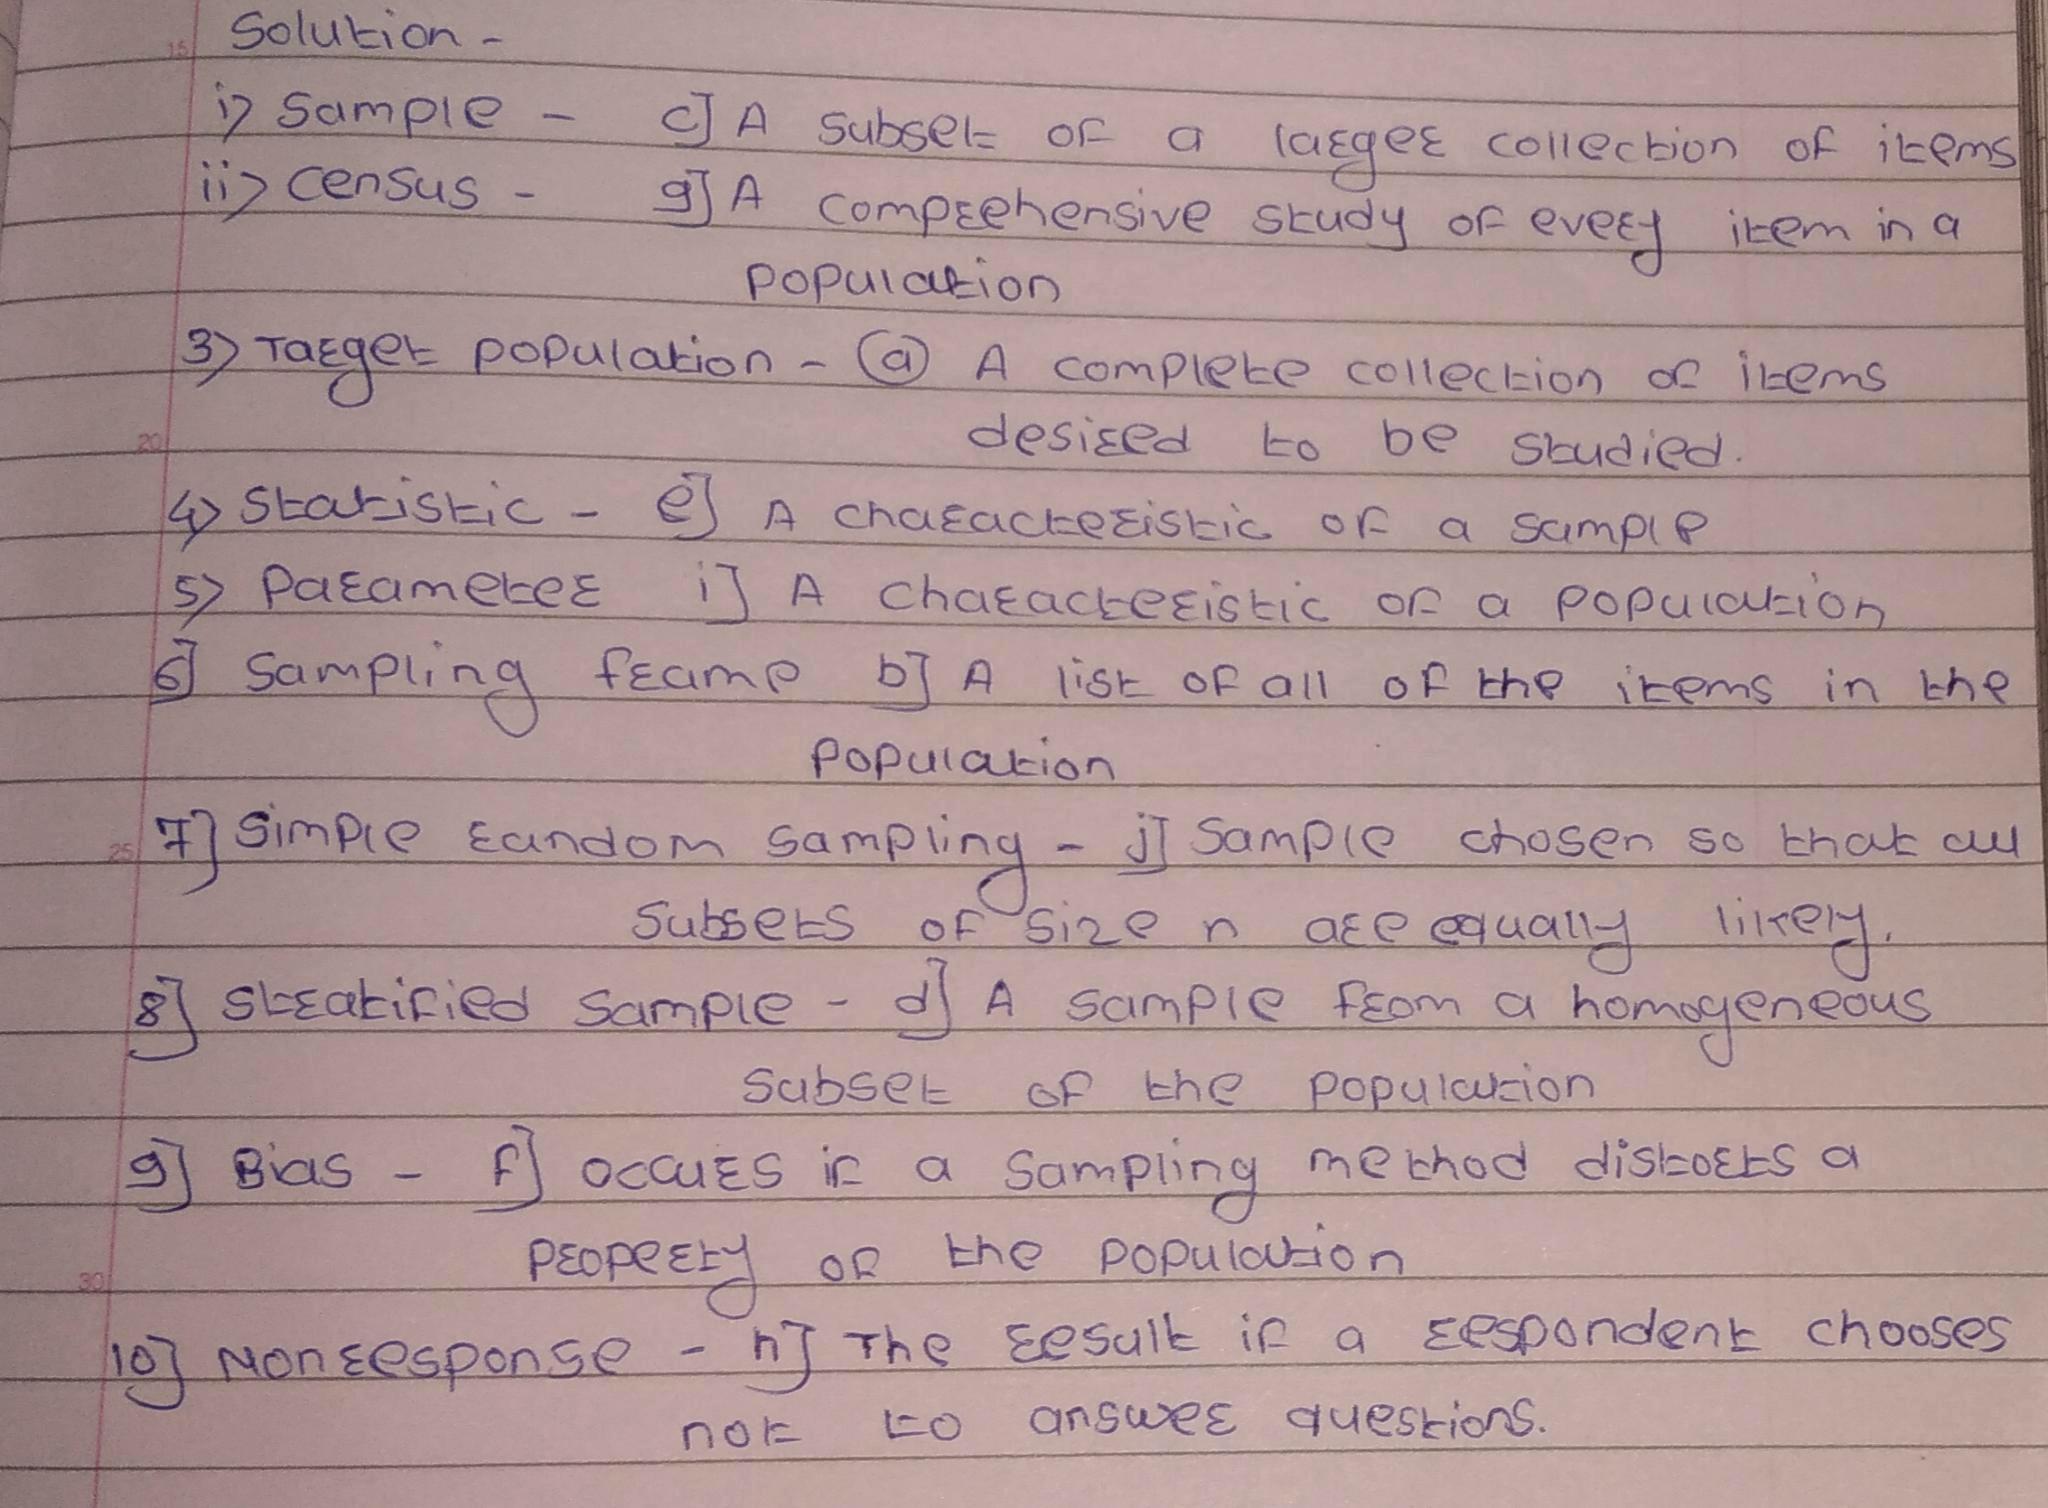 15 Solution -
i> Sample - c] A subset of a larger collection of items
ii> census - g] A comprehensive study of every item in a
population
3> Target population - (a) A complete collection of items
20 desired to be studied.
4> Statistic - e] A characteristic of a sample
5> Parameter i] A characteristic of a population
6] Sampling frame b] A list of all of the items in the
population
25 7] Simple random sampling - j] Sample chosen so that all
subsets of size n are equally likely.
8] Stratified sample - d] A sample from a homogeneous
subset of the population
9] Bias - f] occurs if a sampling method distorts a
30 property of the population
10] Nonresponse - h] The result if a respondent chooses
not to answer questions.